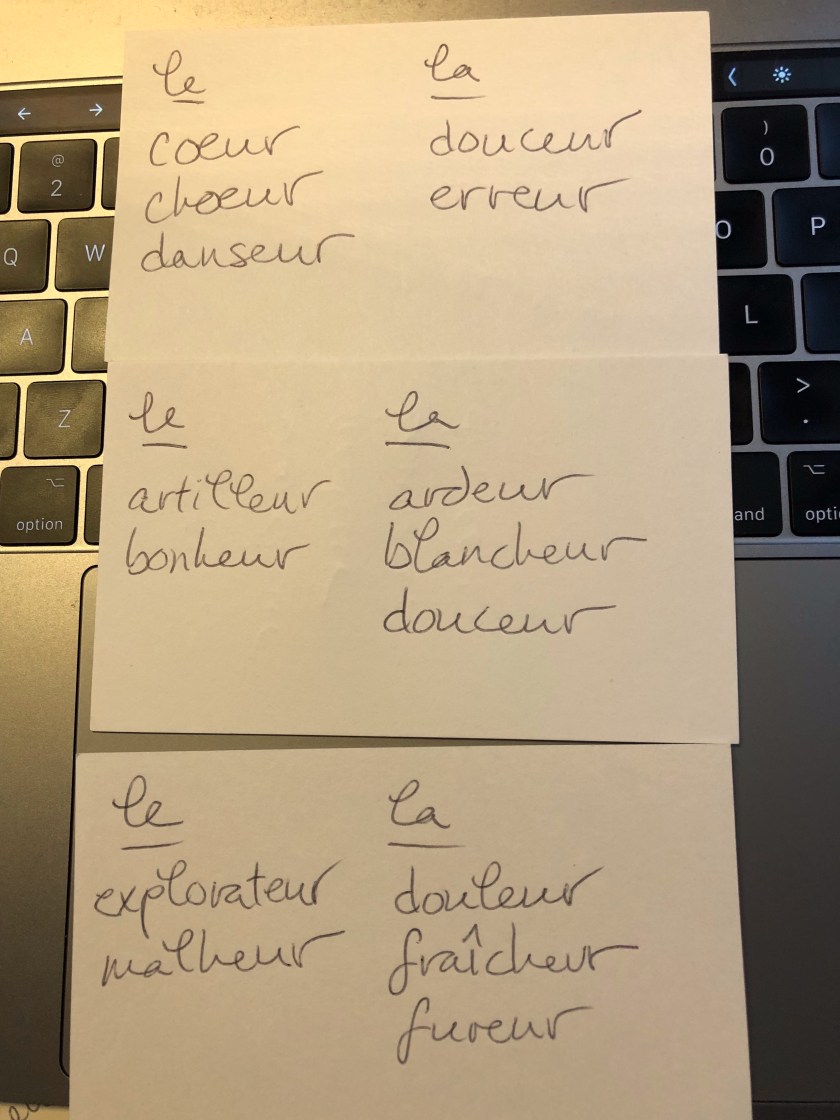 le la
coeur douceur
choeur erreur
danseur
le la
artilleur ardeur
bonheur blancheur
douceur
le la
explorateur douleur
malheur fraîcheur
fureur
← →
@
2
Q W
A
Z
option
)
0
O P
L
>
.
and